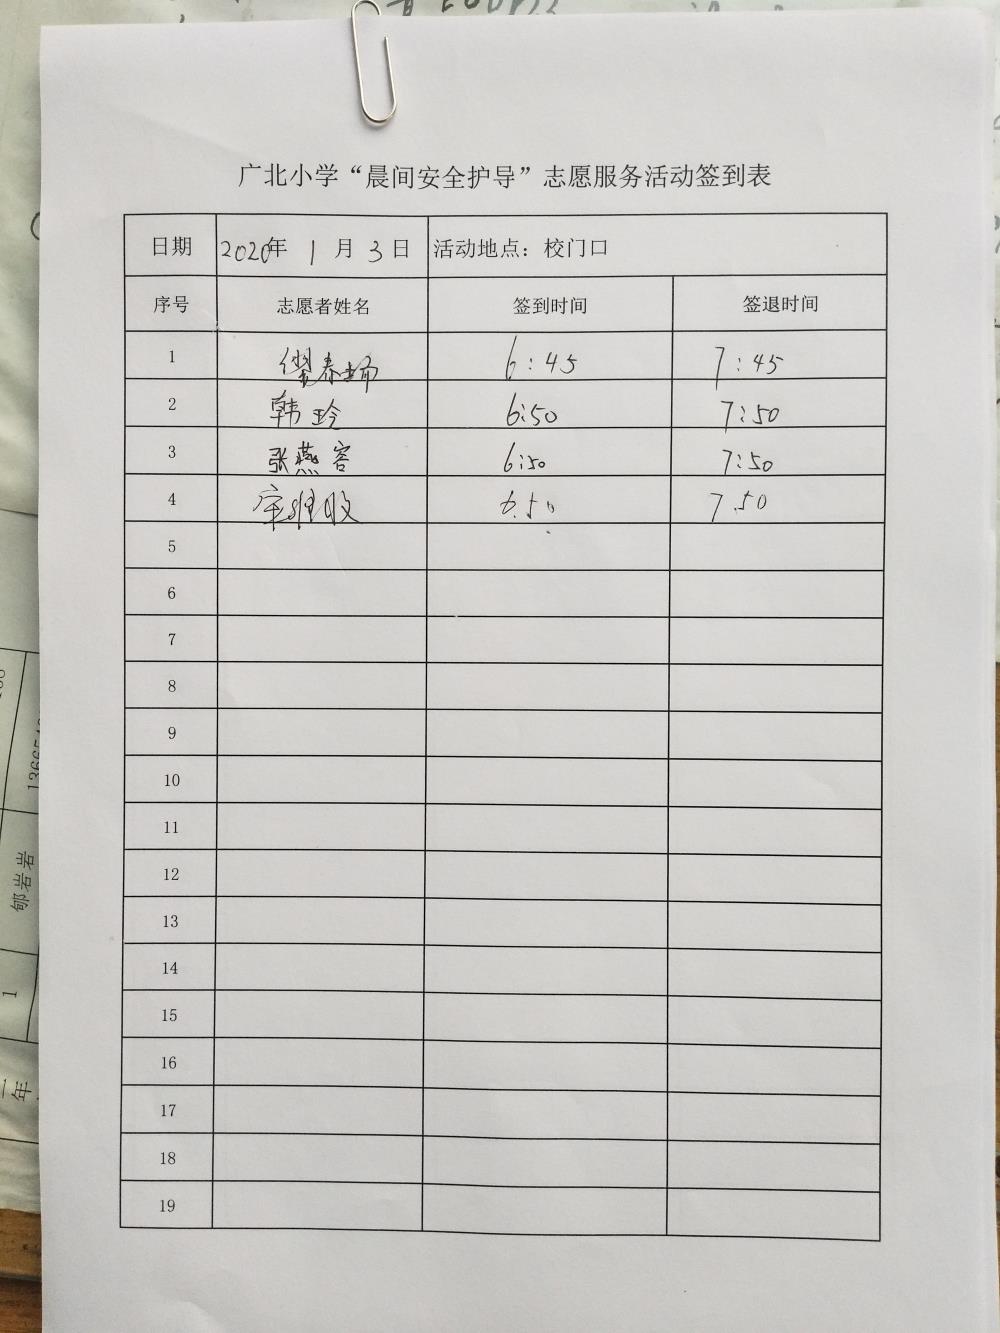 广北小学“晨间安全护导”志愿服务活动签到表
日期 2020年 1 月 3 日 活动地点：校门口
序号 志愿者姓名 签到时间 签退时间
1 春扬 6:45 7:45
2 韩玲 6:50 7:50
3 张燕容 6:50 7:50
4 6.50 7.50
5
6
7
8
9
10
11
12
13
14
15
16
17
18
19
郇岩岩
1
二年